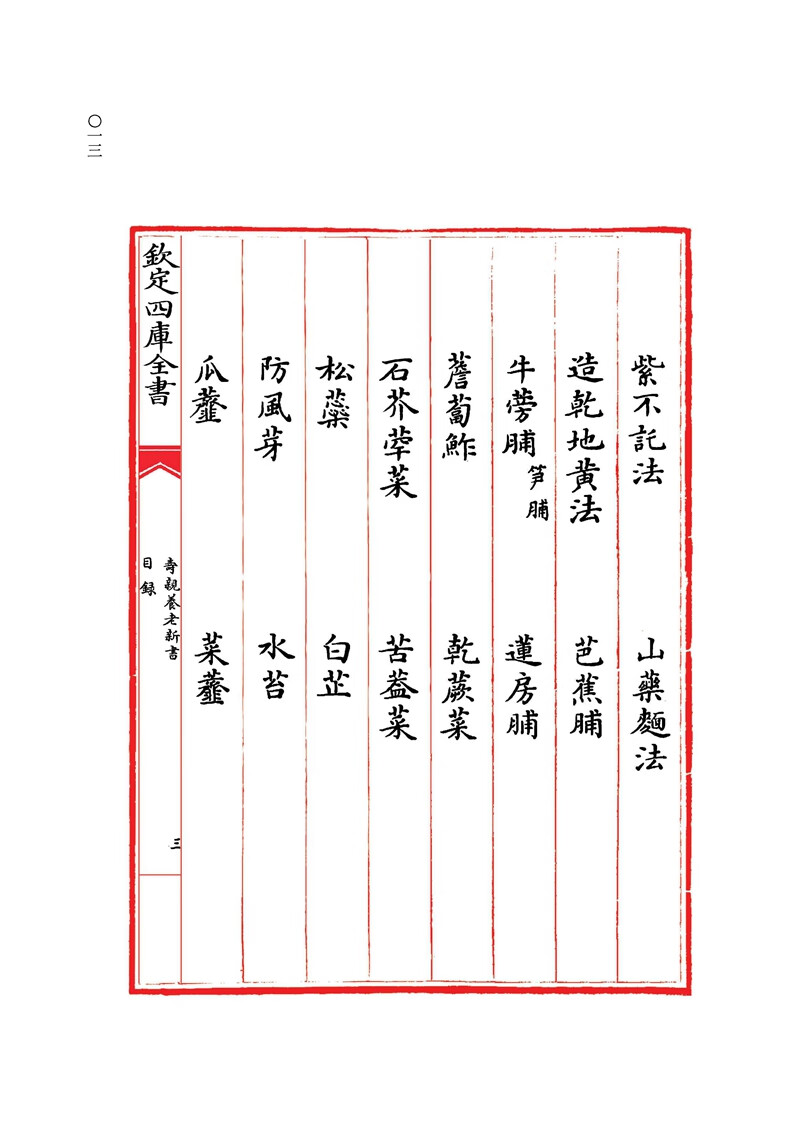 〇一三
紫不託法 山藥麵法
造乾地黄法 芭蕉脯
牛蒡脯 笋脯 蓮房脯
薝蔔鮓 乾蕨菜
石芥葷菜 苦益菜
松蘂 白芷
防風芽 水苔
瓜虀 菜虀
欽定四庫全書
壽親養老新書
目録
三